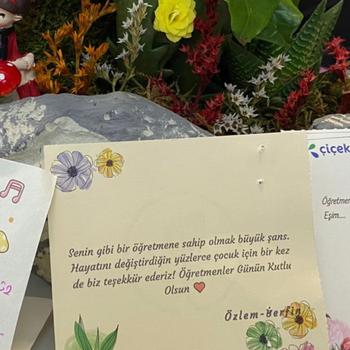 çiçek
Öğretmen
Eşim....
Senin gibi bir öğretmene sahip olmak büyük şans.
Hayatını değiştirdiğin yüzlerce çocuk için bir kez
de biz teşekkür ederiz! Öğretmenler Günün Kutlu
Olsun ❤️